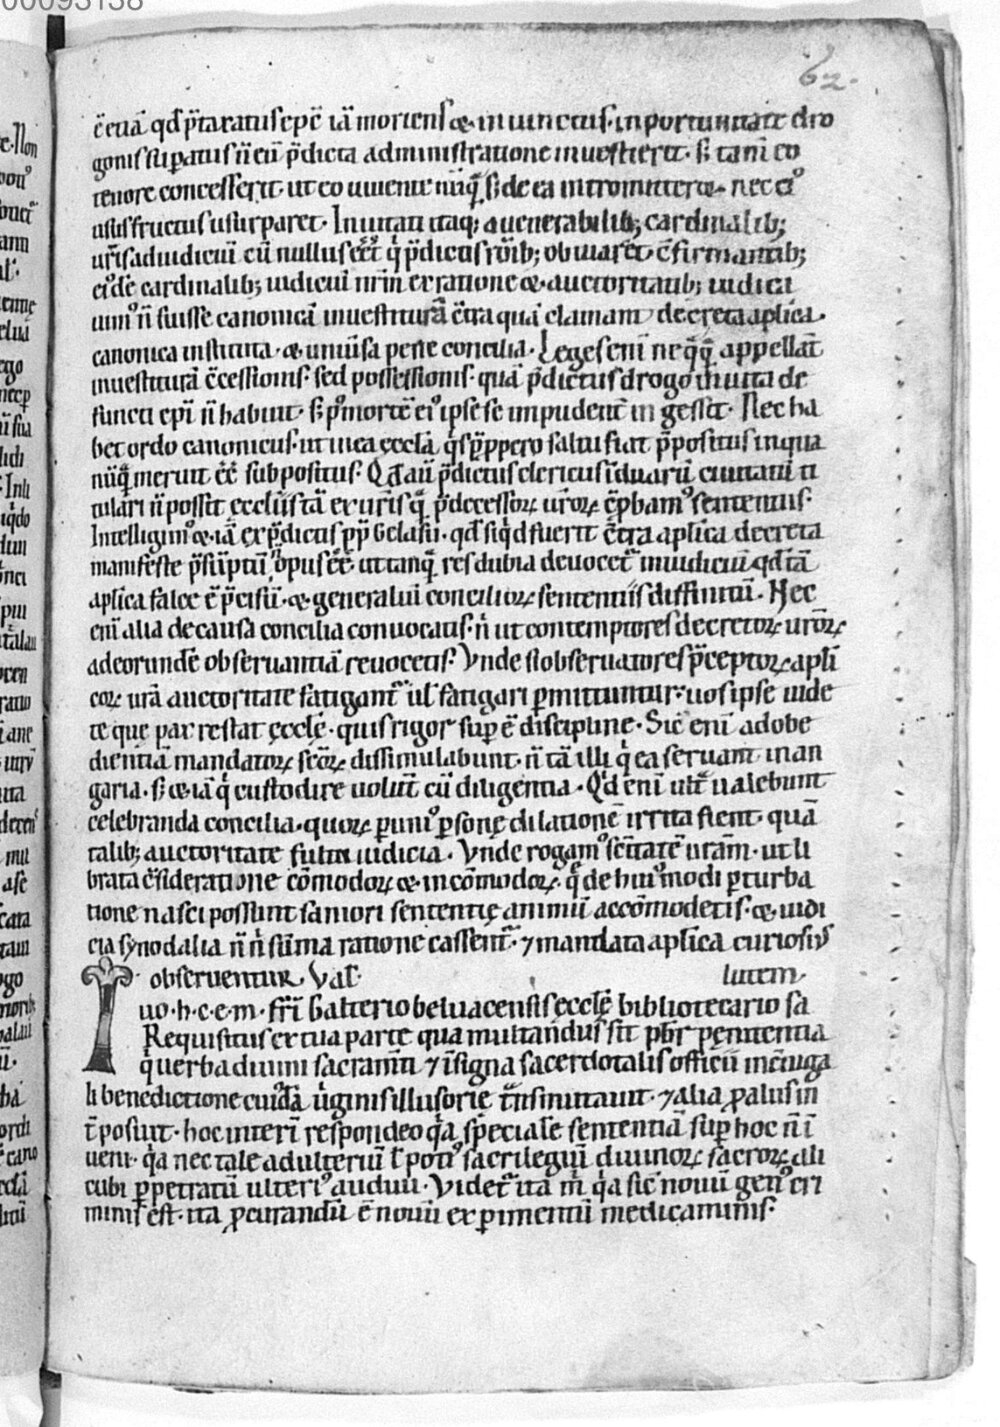 00093138
62.
ē etiā qđ p̄taxatus ep̄c iā moriens & inuinctus. inportunitate dro
gonis supatus n̄ eū p̄dicta administratione inuestierit. s; tam̄ eo
tenore concesserit ut eo uiuente nūq̄ s; de ea intromitteret. nec ei᷒
ususfructus usurparet. Inuitati itaq; a uenerabilib; cardinalib;
ur̄is adiudiciū cū nullus eēt q̄ p̄dictis ob uiaret. c̄firmantib;
ei᷒dē cardinalib; iudiciū nr̄m ex ratione & auctoritatib; iudica
uim᷒ n̄ fuisse canonicā inuestiturā c̄tra quā clamant decreta aplica.
canonica instituta. & uniūsa pene concilia. Leges enī neq̄q̄ appellāt
inuestiturā c̄cessionis. sed possessionis. quā p̄dictus drogo in uita de
functi ep̄i n̄ habuit. s; p᷒ mortē ei᷒ ipse se impudent̄ ingessit. Nec ha
bet ordo canonicus. ut in ea ęcclā saltu fiat p̄positus in qua
nūq̄ meruit eē subpositus. Qđ aū p̄dictus clericus ī duarū ciuitatū ti
tulari n̄ possit ęcclīis tā ex ur̄is q̄ p̄decessoꝝ ur̄oꝝ c̄pbam᷒ sententiis.
Intelligim᷒ & iā ex p̄dictis pp̄ Gelasii. qđ siq̄d fuerit c̄tra aplica decreta
manifeste p̄sūptū. n̄ opus eē. ut tanq̄ res dubia deuocet᷑ in iudiciū qđ iā
aplica falce ē p̄cisū. & generaliū concilioꝝ sententiis diffinitū. Nec
enī alia de causa concilia conuocatis. n̄ ut contemptores decretoꝝ ur̄oꝝ
ad eorundē obseruantiā reuocetis. Vnde si obseruatores p̄ceptoꝝ apli
coꝝ ur̄a auctoritate fatigant᷑ ul fatigari pmittuntur. uos ipse uide
te que par restat ęcclę. quis rigor sup ē disciplinę. Sic enī ad obe
dientiā mandatoꝝ sc̄oꝝ dissimulabunt. n̄ tā illi q̄ ea seruant in an
garia. s; & iā q̄ custodire uolunt cū diligentia. Qđ enī ult̄ ualebunt
celebranda concilia. quoꝝ p uni᷒ psonę dilationē irrita fient. quā
talib; auctoritate fulta iudicia. Vnde rogam᷒ sc̄itatē ur̄am. ut li
brata c̄sideratione cōmodoꝝ & incōmodoꝝ. q̄ de hui᷒modi pturba
tione nasci possunt saniori sententię animū accōmodetis. & iudi
cia synodalia n̄ n̄ sūma ratione cassent᷑. ⁊ mandata aplica curiosius
obseruentur. Val.
lutem.
Iuo. h. c. e. m. fr̄i Galterio beluacensis ęcclę bibliotecario sa
Requisitus ex tua parte qua multandus sit pb̄r pęnitentia
q̄ uerba diuini sacram̄ti ⁊ īsigna sacerdotalis officii in c̄iuga
li benedictione cuidā ūginis illusorie t̄nsmutauit. ⁊ alia p̱ alus in
t̄posuit. hoc interī respondeo q̄a specialē sententiā sup hoc n̄ ī
ueni. q̄a nec tale adulteriū l poti᷒ sacrilegiū diuinoꝝ sacroꝝ ali
cubi ppetratū ulteri᷒ audiui. Videt᷑ itā m̄ q̄a sic nouū gen᷒ cri
minis est. ita p̱curandū ē nouū expimentū medicaminis.